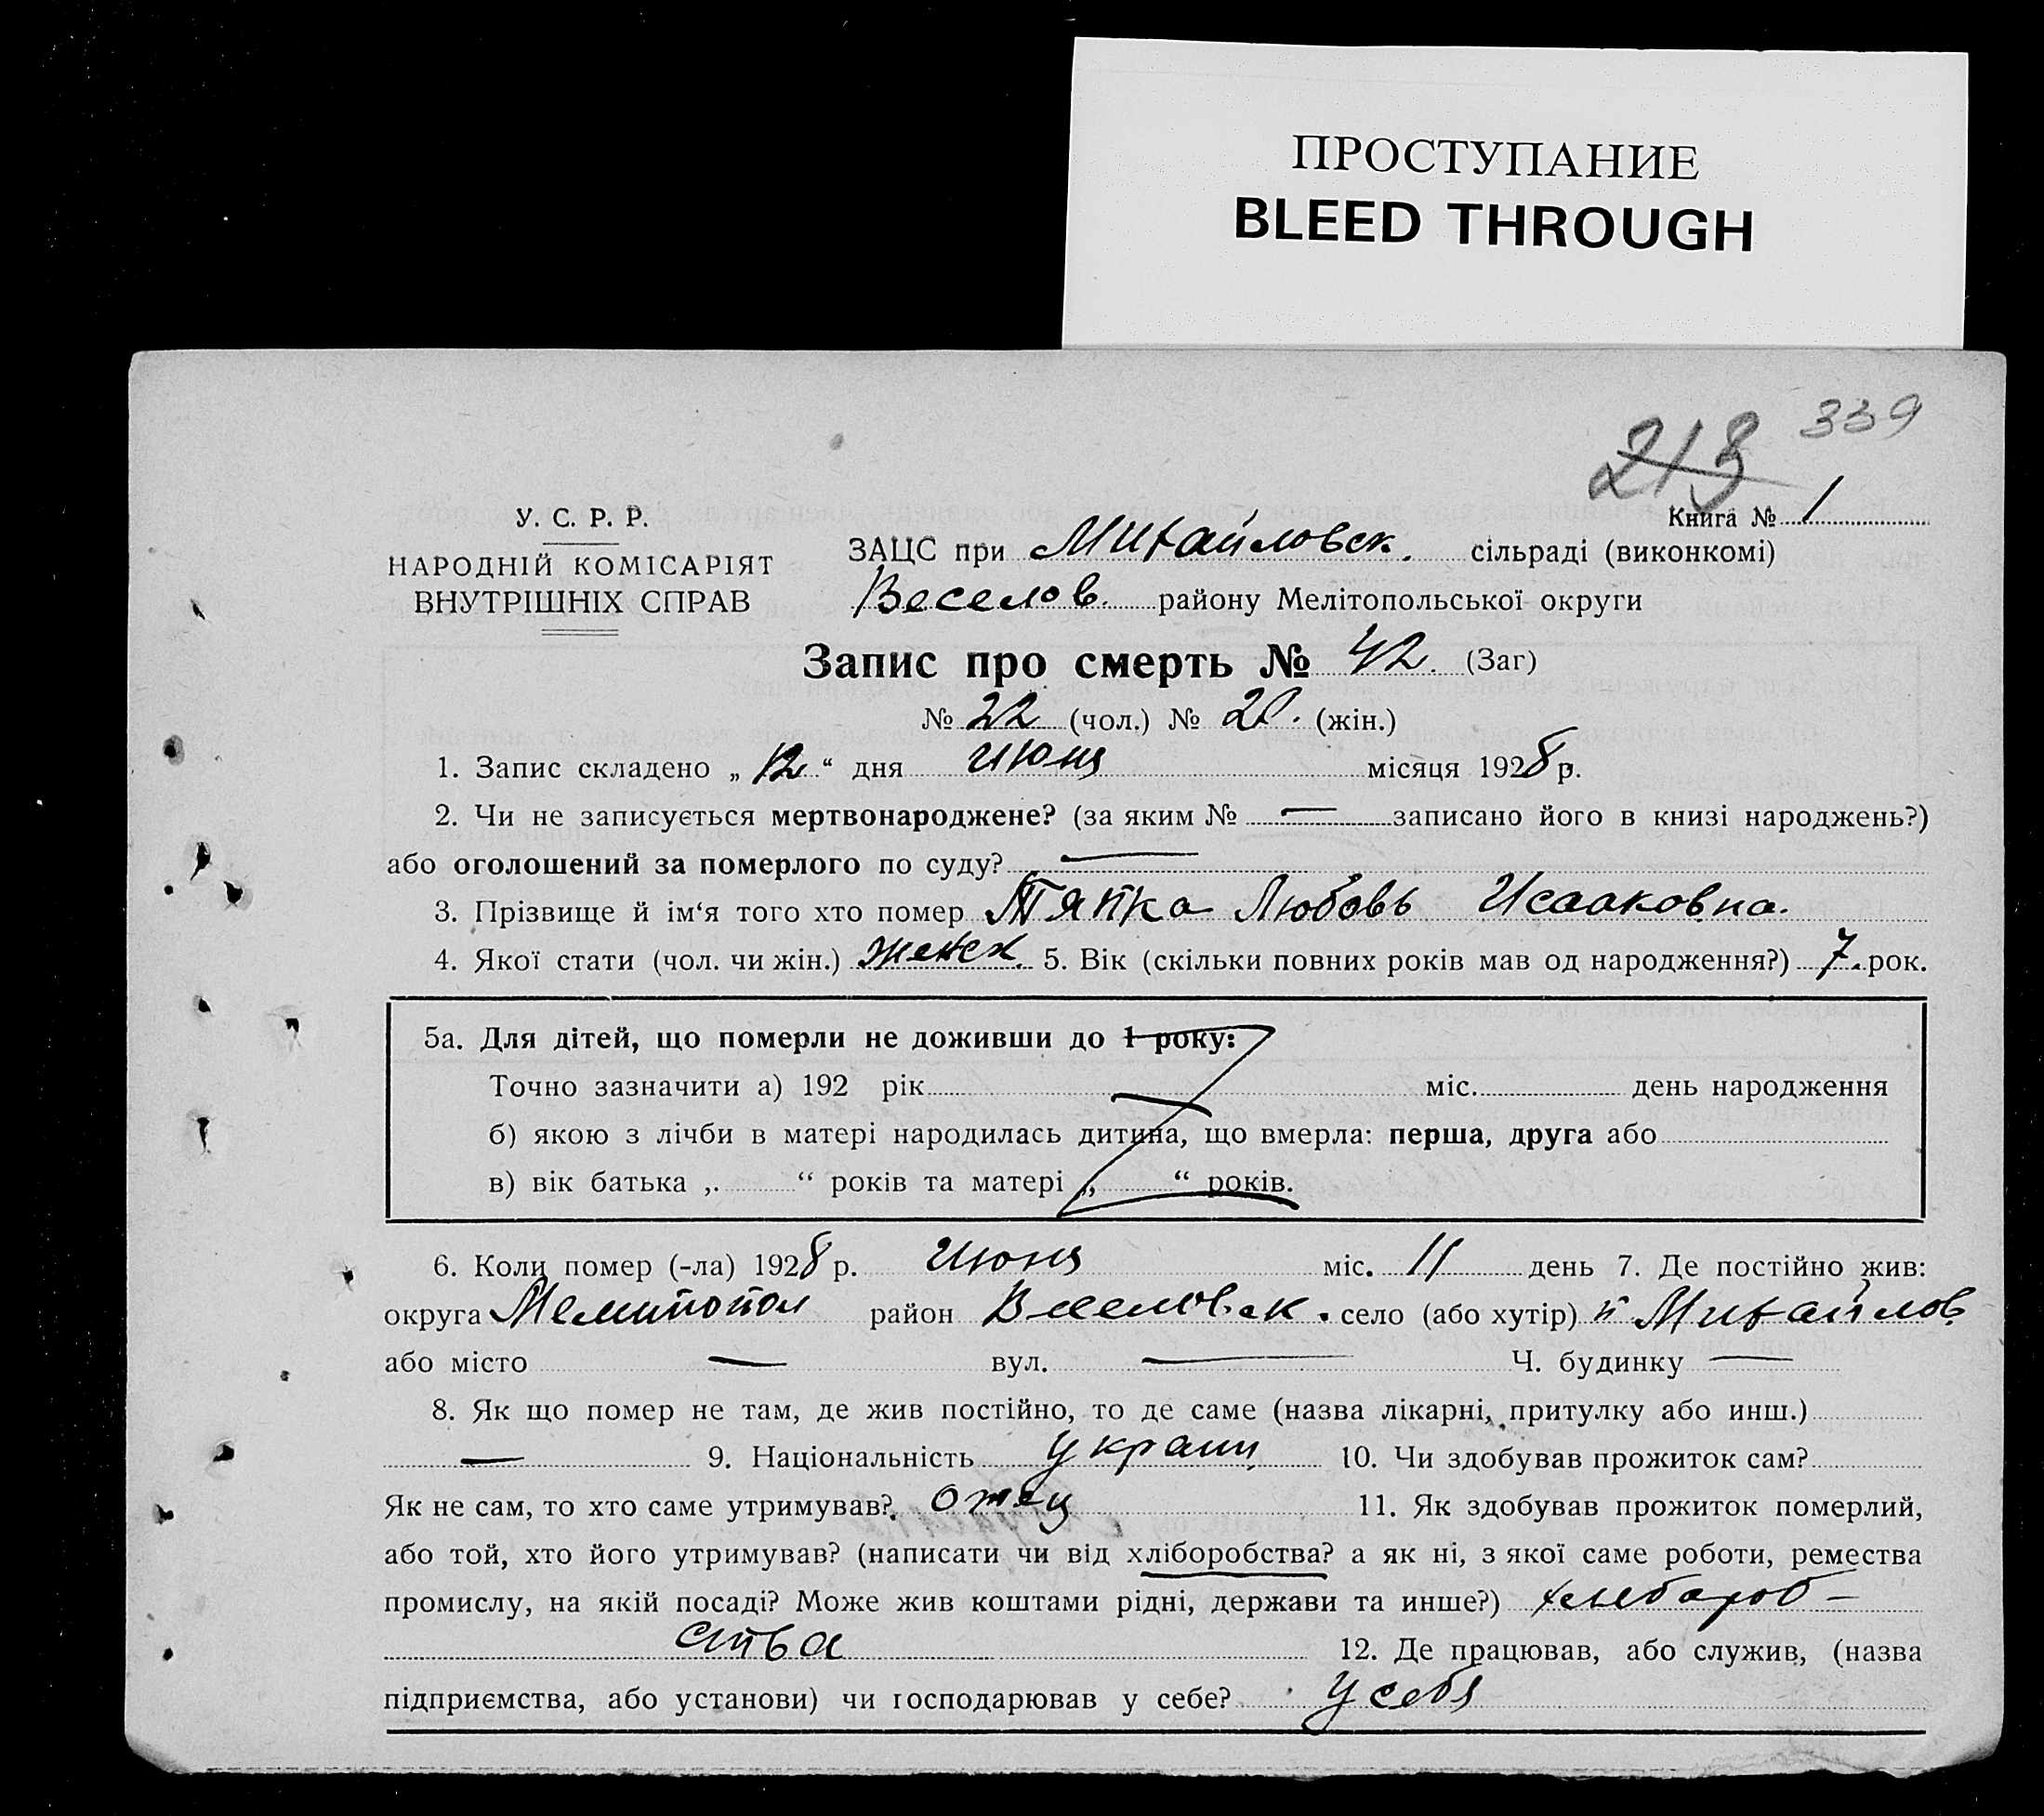 ПРОСТУПАНИЕ
BLEED THROUGH
339
213
Книга № 1
У. С. Р. Р.
НАРОДНІЙ КОМІСАРІЯТ
ВНУТРІШНІХ СПРАВ
ЗАЦС при Михайловск. сільраді (виконкомі)
Веселов. району Мелітопольської округи
Запис про смерть № 42. (Заг)
№ 22 (чол.) № 20. (жін.)
1. Запис складено „ 12 “ дня июня місяця 1928 р.
2. Чи не записується мертвонароджене? (за яким № — записано його в книзі народжень?)
або оголошений за померлого по суду? —
3. Прізвище й ім‘я того хто помер Тяпка Любовь Исааковна.
4. Якої стати (чол. чи жін.) женск. 5. Вік (скільки повних років мав од народження?) 7. рок.
5а. Для дітей, що померли не доживши до 1 року:
Точно зазначити а) 192 рік міс. день народження
б) якою з лічби в матері народилась дитина, що вмерла: перша, друга або
в) вік батька „ “ років та матері „ “ років.
6. Коли помер (-ла) 1928 р. июня міс. 11 день 7. Де постійно жив:
округа Мелитопол район Веселовск. село (або хутір) Михайлов.
або місто — вул. — Ч. будинку —
8. Як що помер не там, де жив постійно, то де саме (назва лікарні, притулку або инш.)
— 9. Національність украин 10. Чи здобував прожиток сам?
Як не сам, то хто саме утримував? отец 11. Як здобував прожиток померлий,
або той, хто його утримував? (написати чи від хліборобства? а як ні, з якої саме роботи, ремества
промислу, на якій посаді? Може жив коштами рідні, держави та инше?) хлебороб-
ства 12. Де працював, або служив, (назва
підприємства, або установи) чи господарював у себе? у себя